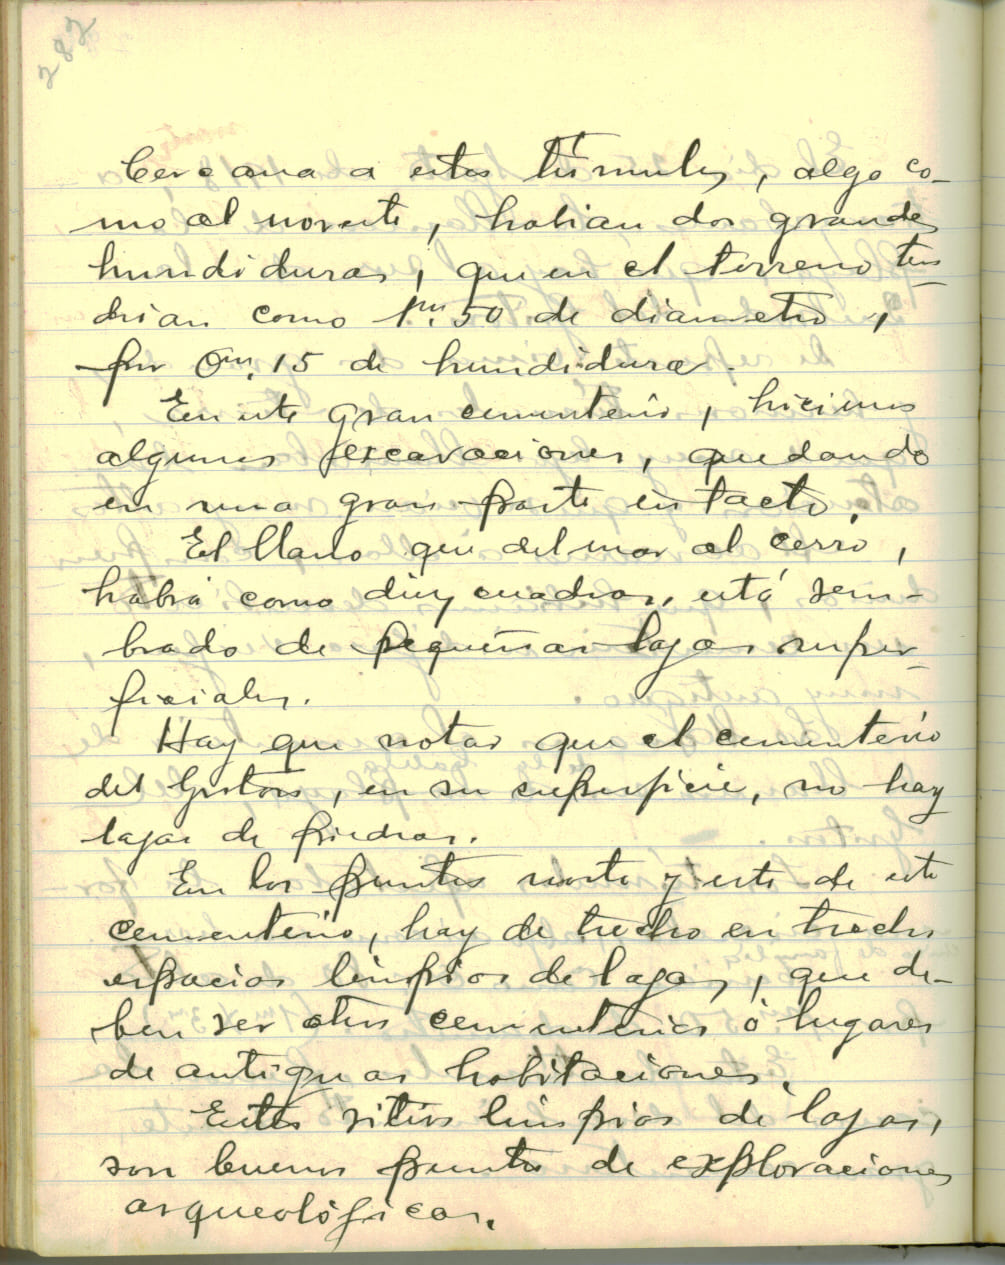 282
Cercana a estos túmulos, algo co-
mo al noreste, habian dos grandes
hundiduras, que en el terreno ten-
drian como 1m.50 de diametro,
por 0m.15 de hundidura.
En este gran cementerio, hicimos
algunas excavaciones, quedando
en una gran parte intacto.
El llano que del mar al cerro,
habrá como diez cuadras, está sem-
brado de pequeñas lajas super-
ficiales.
Hay que notar que el cementerio
del , en su superficie, no hay
lajas de piedras.
En los puntos norte y este de este
cementerio, hay de trecho en trecho
espacios limpios de lajas, que de-
ben ser otros cementerios ó lugares
de antiguas habitaciones.
Estos sitios limpios de lajas,
son buenos puntos de exploraciones
arqueolójicas.